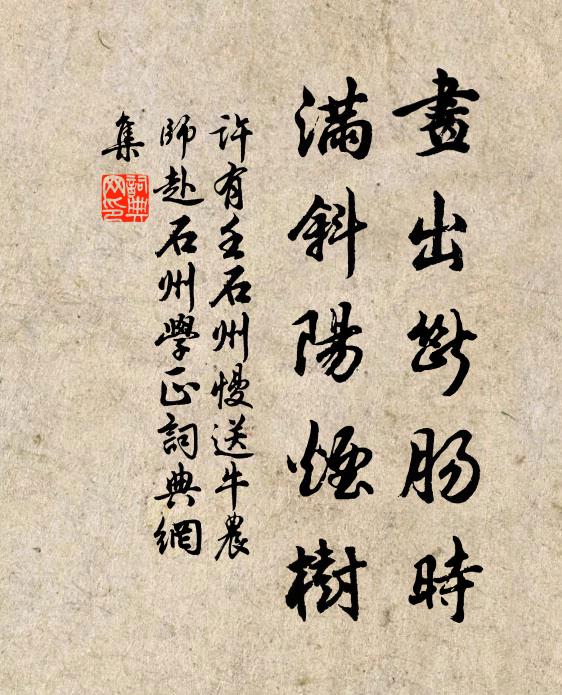 畫出斷腸時
滿斜陽煙樹
許有壬石州慢送牛農
師赴石州學正詞典網
集
詞典网印